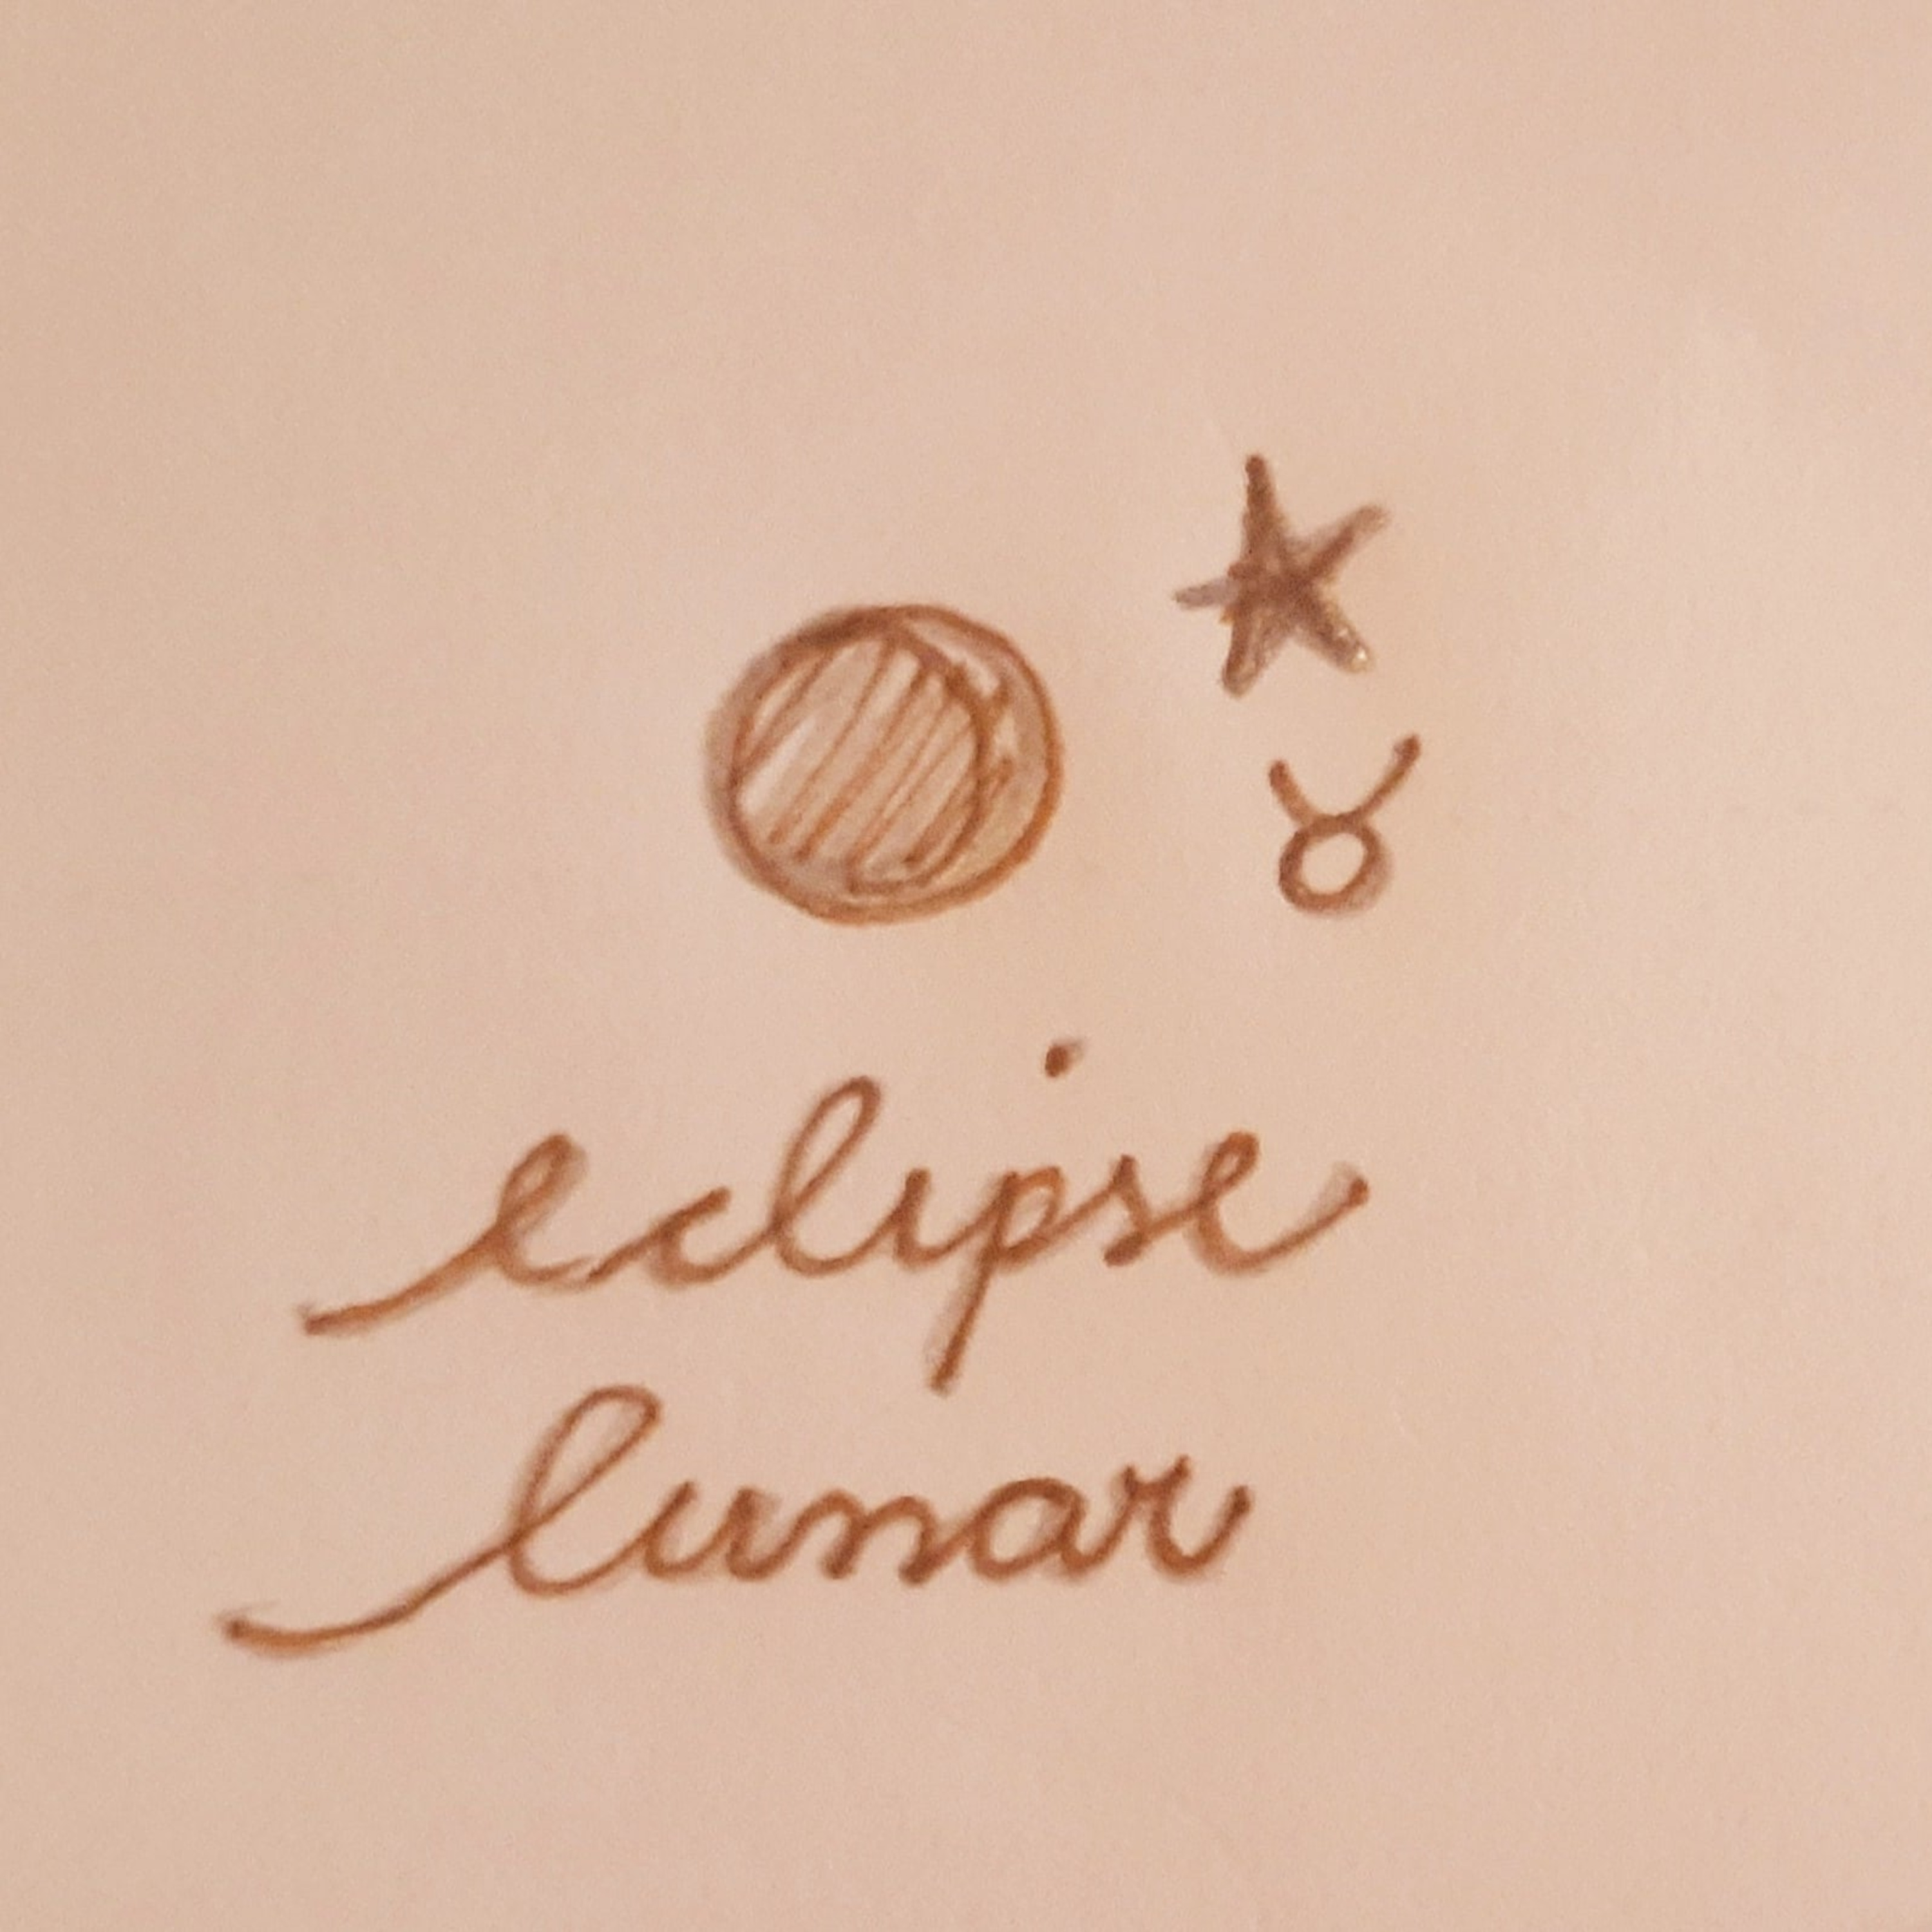 ♉
eclipse
lunar